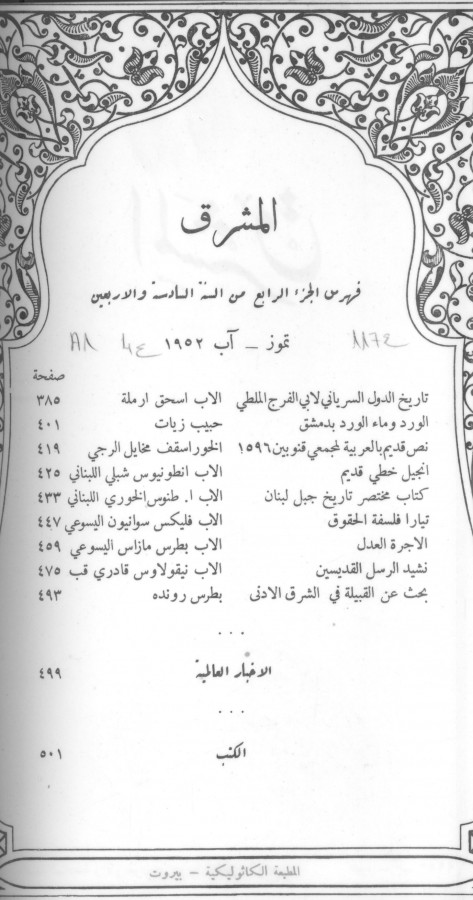 المشرق
فهرس الجزء الرابع من السنة السادسة والاربعين
تموز – آب ١٩٥٢
صفحة
تاريخ الدول السرياني لابي الفرج الملطي الاب اسحق ارملة ٣٨٥
الورد وماء الورد بدمشق حبيب زيات ٤٠١
نص قديم بالعربية لمجمعي قنوبين ١٥٩٦ الخوراسقف مخايل الرجي ٤١٩
انجيل خطي قديم الاب انطونيوس شبلي اللبناني ٤٢٥
كتاب مختصر تاريخ جبل لبنان الاب ا. طنوس الخوري اللبناني ٤٣٣
تيارا فلسفة الحقوق الاب فليكس سوانيون اليسوعي ٤٤٧
الاجرة العدل الاب بطرس مازاس اليسوعي ٤٥٩
نشيد الرسل القديسين الاب نيقولاوس قادري قب ٤٧٥
بحث عن القبيلة في الشرق الادنى بطرس رونده ٤٩٣
...
الاخبار العالمية ٤٩٩
...
الكتب ٥٠١
المطبعة الكاثوليكية – بيروت